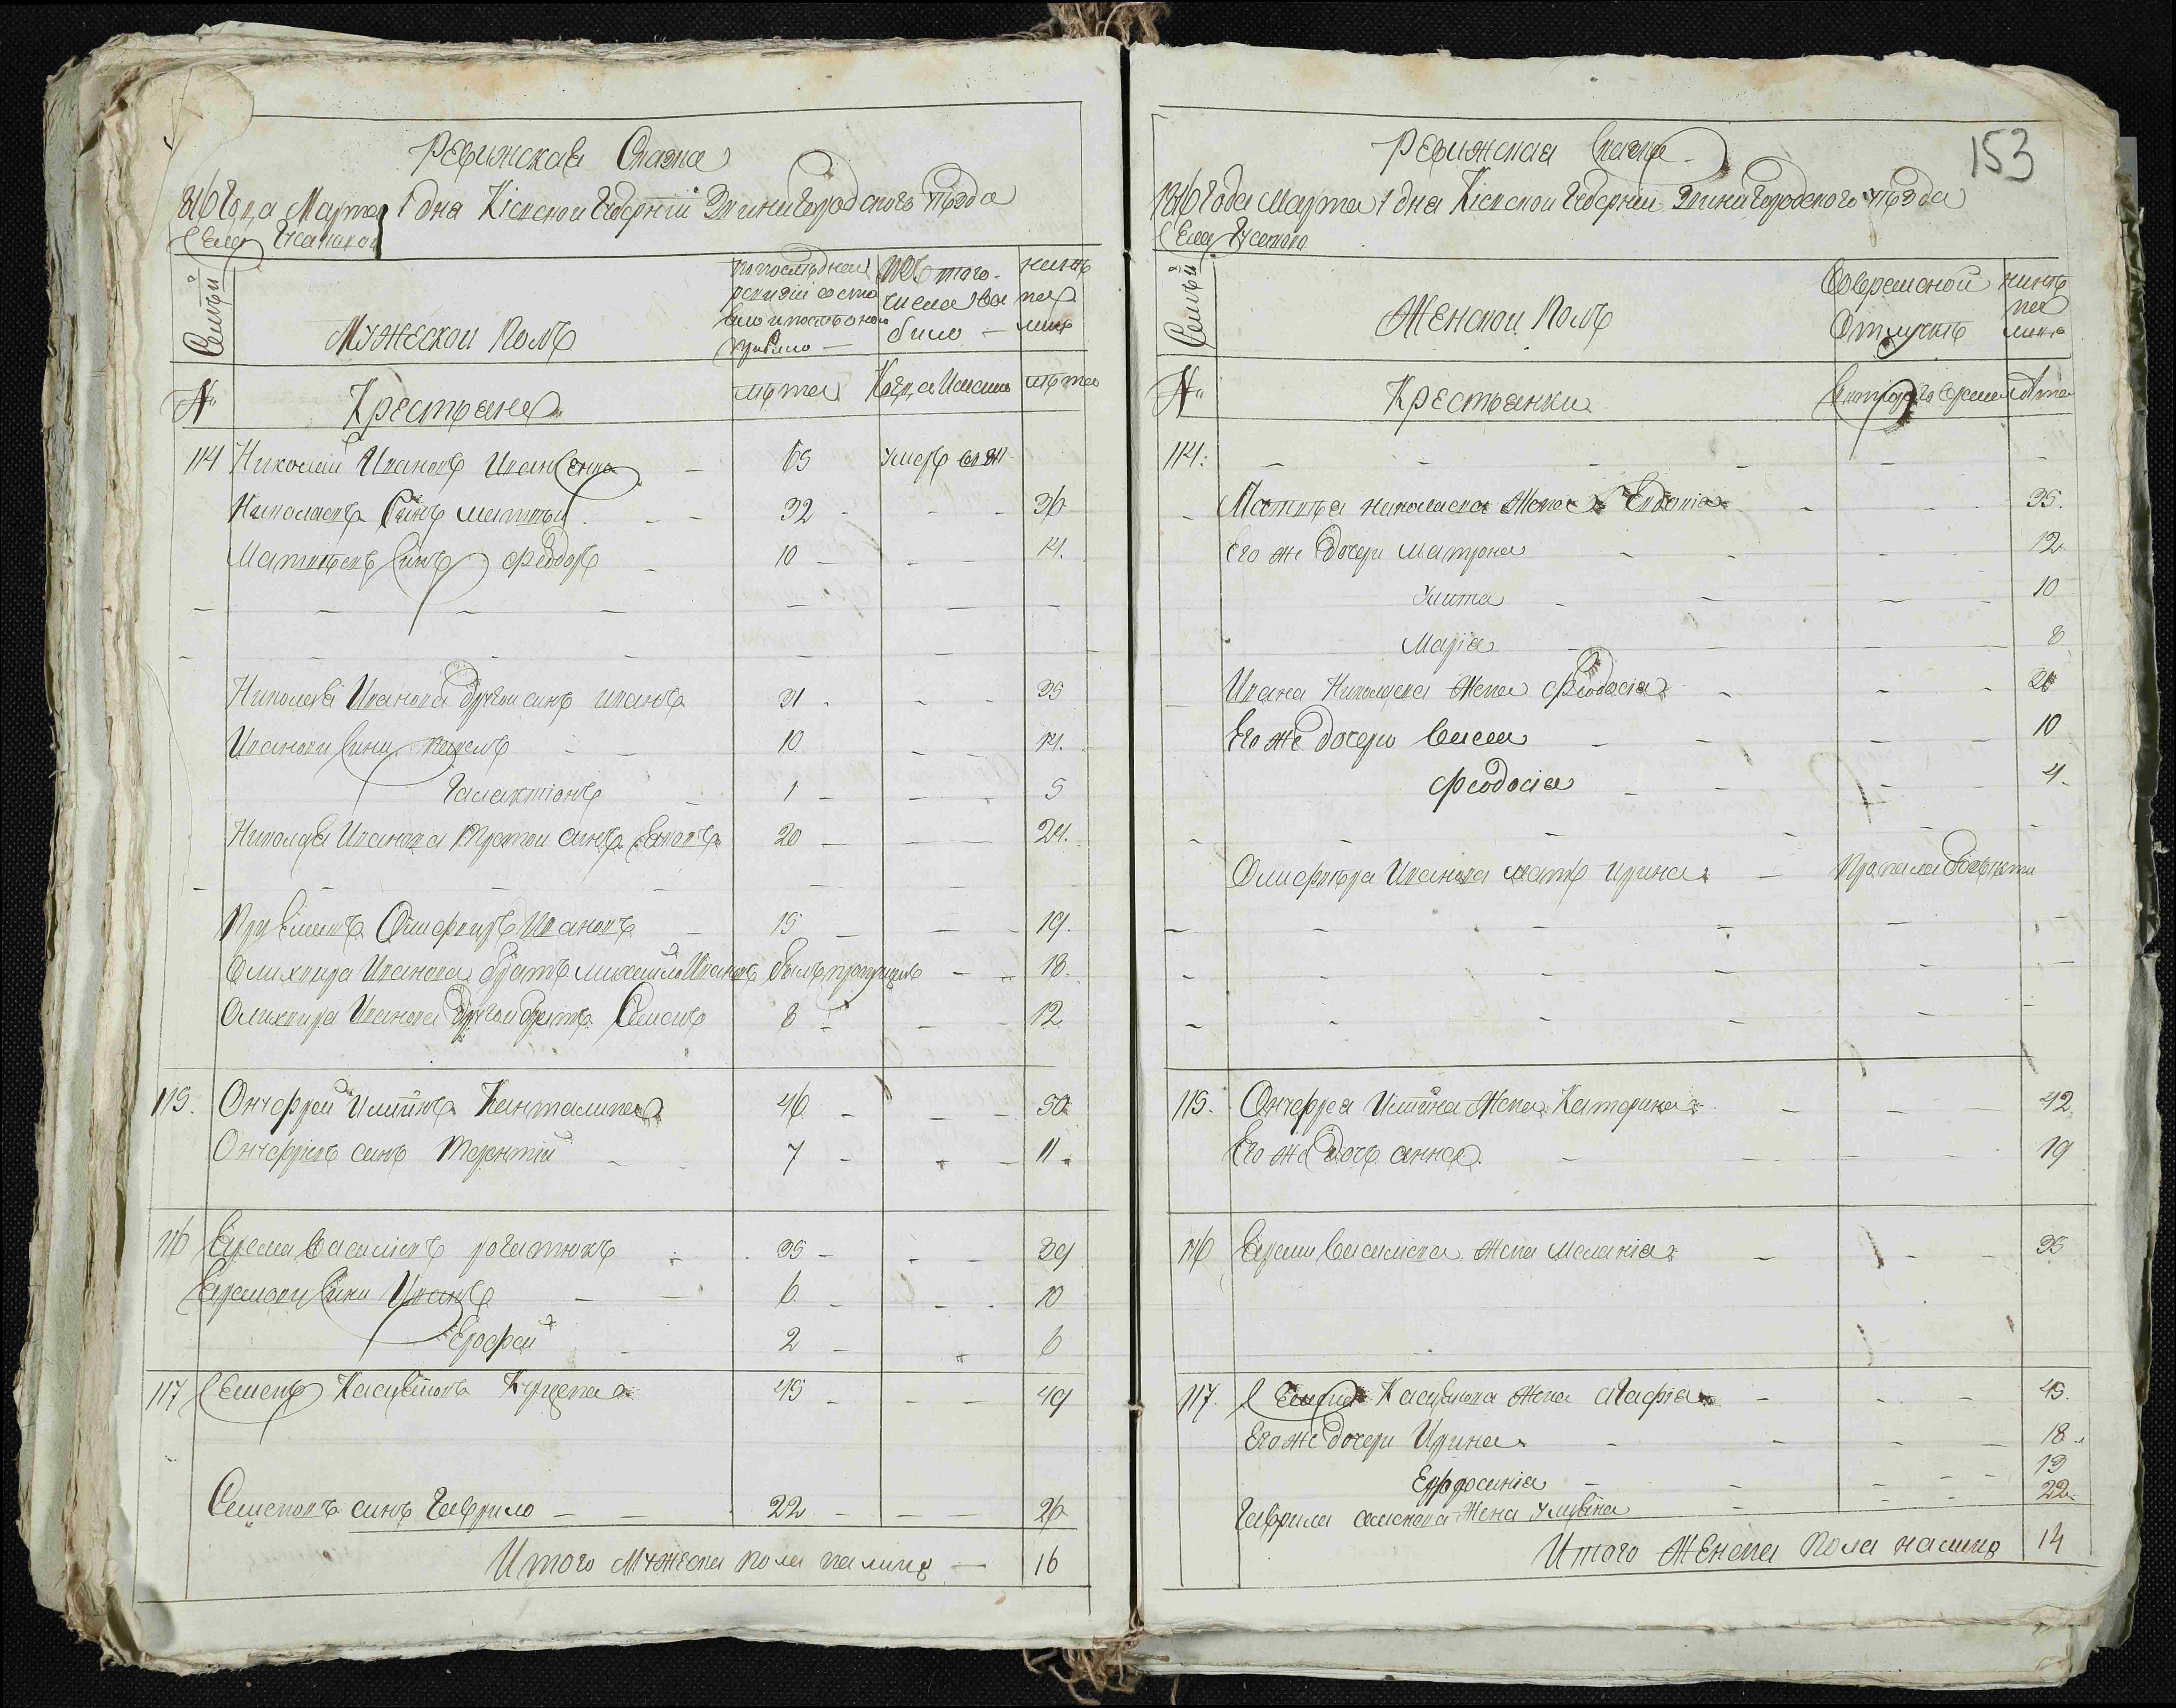 Ревижская Сказка
816 Года Марта 1 дня Кіевской Губерніи Звинигородского Повѣда
Села
Семьи
Мужеской Полъ
по последней ревизіи состо
яло и послѣ оной
прибыло
Изъ того
числа
было
нинѣ
на
лицо
№
Крестьяне
лѣта
Когда Именно
лѣта
114 Николай Ивановъ 65 умеръ
Николаевъ Синъ Матвѣй 32 36
Матвѣевъ Синъ Феодоръ 10 14.
Николая Иванова другои синъ Иванъ 31 35
Иванови Сини Павелъ 10 14.
Галактіонъ 1 5
Николая Иванова третои синъ 20 24.
Олиферъ Ивановъ 15 19.
Олихвира Иванова братъ Михаило Ивановъ билъ пропущенъ 18.
Олихвира Иванова другои братъ Семенъ 8 12
115. Ончефрей Илиинъ 46 50
Ончефріевъ синъ Терентій 7 11
116 Ерема Василіевъ рогатюкъ 35 39
Еремови Сини Иванъ 6 10
Ерофей 2 6
117 Семенъ 45 49
Семеновъ синъ Гаврило 22 26
Итого Мужеска пола на лицо 16
153
Ревижская Сказка
1816 Года Марта 1 дня Кіевской Губерніи Звинигородского Повѣда
Села
Семьи
Женской Полъ
Во временой
Отлучкѣ
нинѣ
на
лицо
№
Крестьянки
Лѣта
114:
Матвѣя Николаева Жена Евдокіа 35.
Его же Дочери Матрона 12
Улита 10
Марія 8
Ивана Николаева Жена Феодосіа
Его же дочери 10
Феодосіа 4.
Олифѣра Иванова мать Ирина
115. Ончефрея Илиина Жена Катерина 42
Его же Дочь анна 19
116 Ереми Василіева Жена Меланіа 35
117. Семена Жена Агафіа 45.
Его же Дочери Ирина 18
Ефросиніа 13
Гаврила Семенова Жена 22
Итого Женска Пола на лицо 14